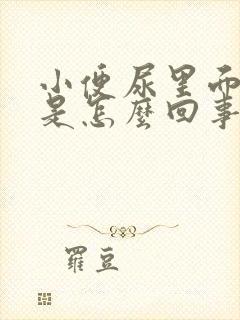 小便尿里而
是怎麼回事
羅豆